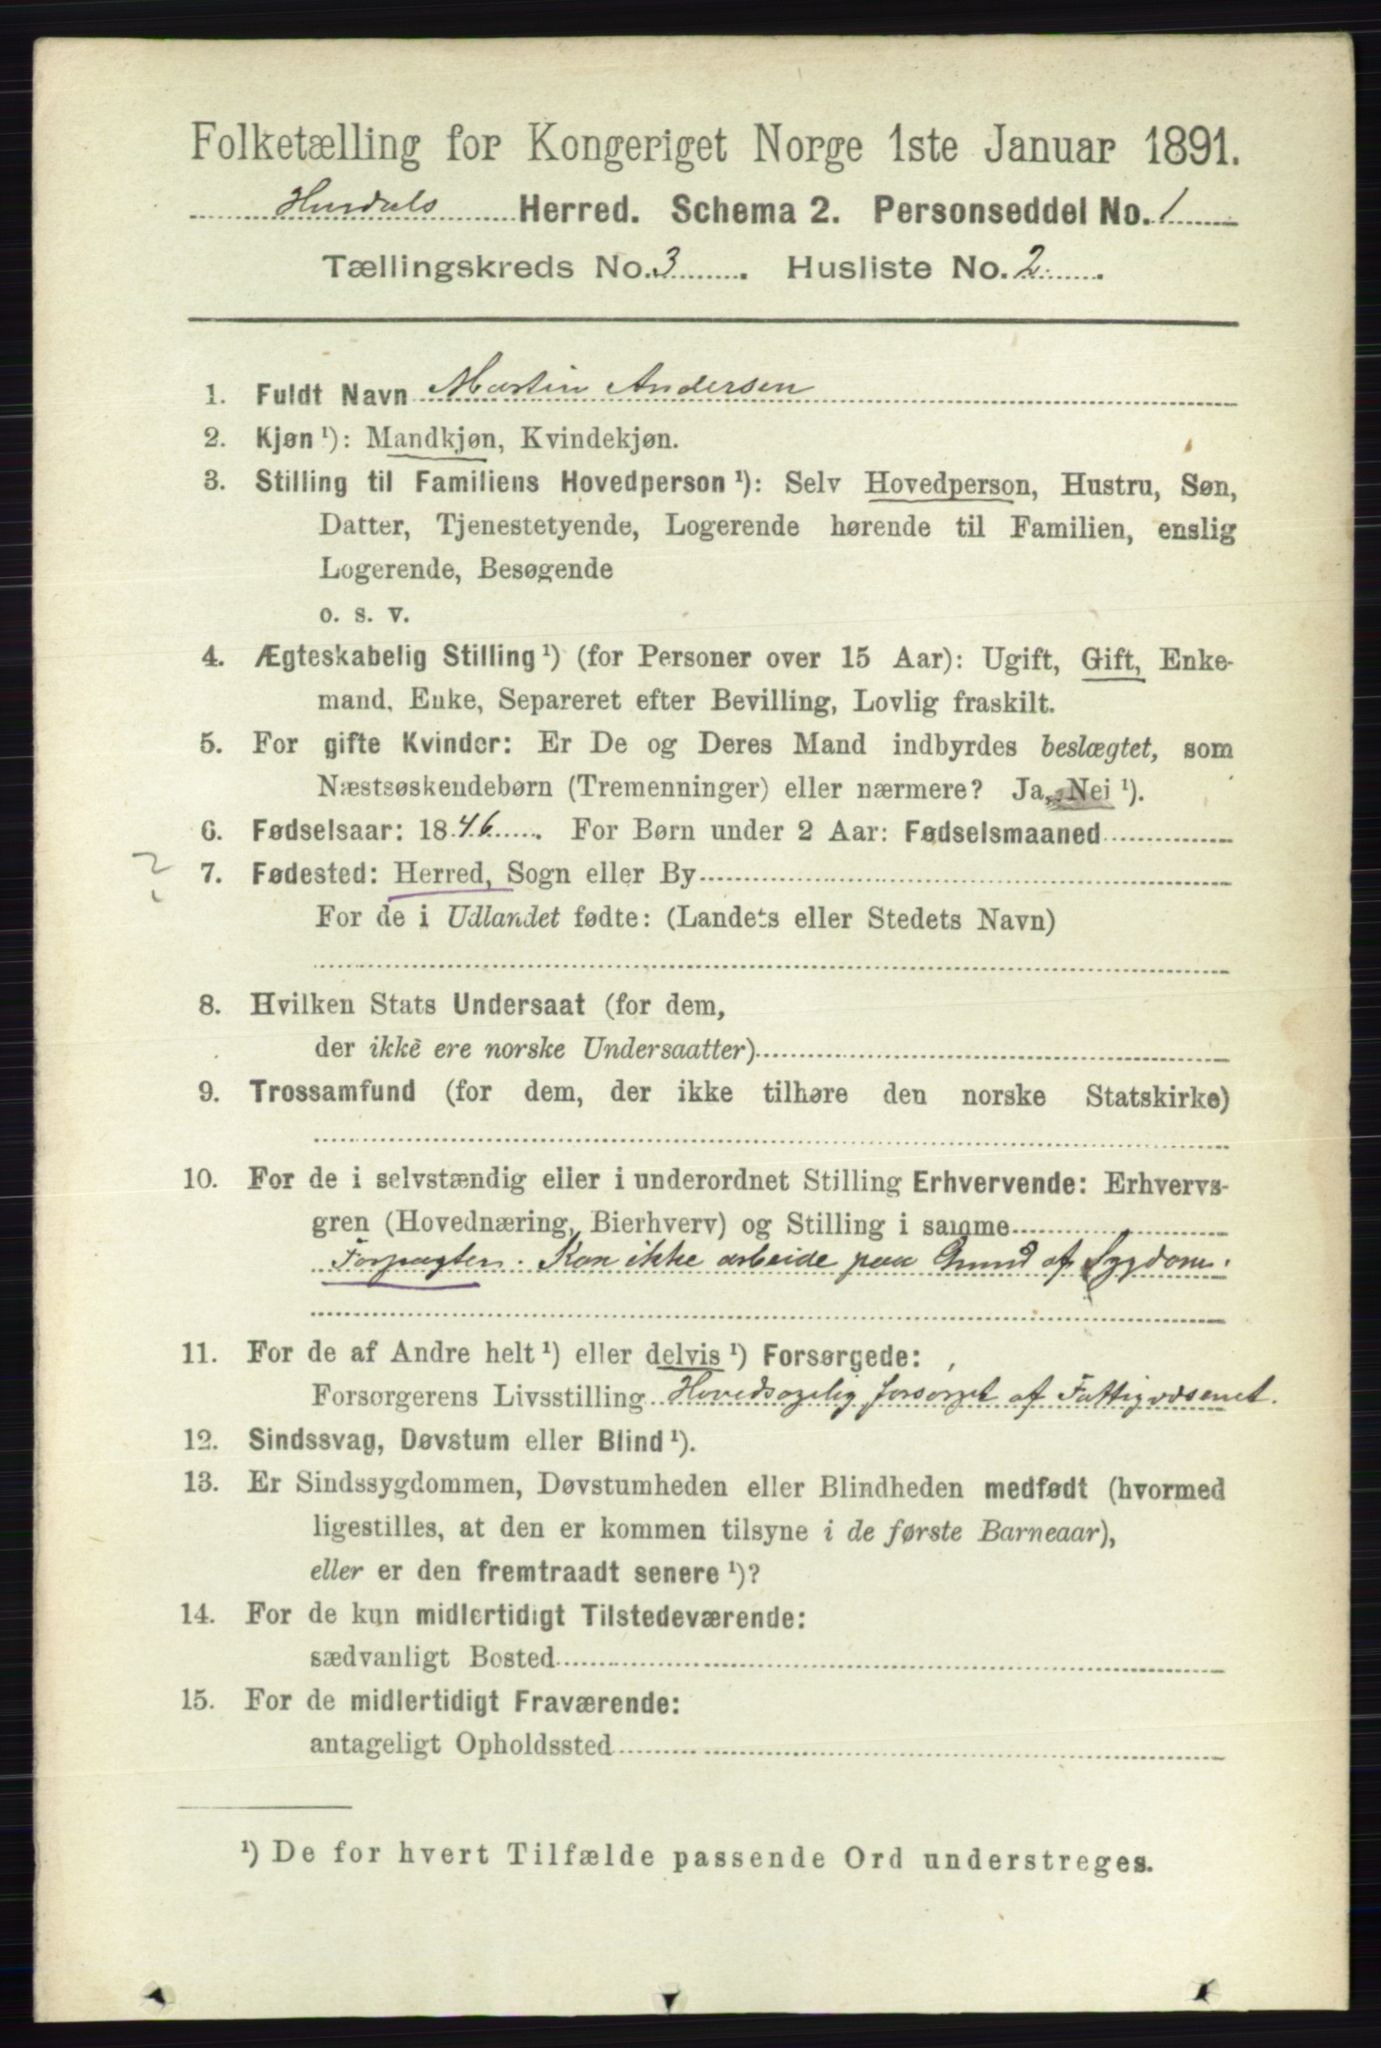 Folketælling for Kongeriget Norge 1ste Januar 1891.
Hurdals Herred. Schema 2. Personseddel No. 1
Tællingskreds No. 3. Husliste No. 2.
1. Fuldt Navn Martin Andersen
2. Kjøn ¹): Mandkjøn, Kvindekjøn.
3. Stilling til Familiens Hovedperson ¹): Selv Hovedperson, Hustru, Søn,
Datter, Tjenestetyende, Logerende hørende til Familien, enslig
Logerende, Besøgende
o. s. v.
4. Ægteskabelig Stilling ¹) (for Personer over 15 Aar): Ugift, Gift, Enke-
mand, Enke, Separeret efter Bevilling, Lovlig fraskilt.
5. For gifte Kvinder: Er De og Deres Mand indbyrdes beslægtet, som
Næstsøskendebørn (Tremenninger) eller nærmere? Ja, Nei ¹).
6. Fødselsaar: 1846. For Børn under 2 Aar: Fødselsmaaned
? 7. Fødested: Herred, Sogn eller By
For de i Udlandet fødte: (Landets eller Stedets Navn)
8. Hvilken Stats Undersaat (for dem,
der ikke ere norske Undersaatter)
9. Trossamfund (for dem, der ikke tilhøre den norske Statskirke)
10. For de i selvstændig eller i underordnet Stilling Erhvervende: Erhvervs-
gren (Hovednæring, Bierhverv) og Stilling i samme
Forpagter. Kan ikke arbeide paa Grund af Sygdom.
11. For de af Andre helt ¹) eller delvis ¹) Forsørgede:
Forsørgerens Livsstilling Hovedsagelig forsørget af Fattigvæsenet.
12. Sindssvag, Døvstum eller Blind ¹).
13. Er Sindssygdommen, Døvstumheden eller Blindheden medfødt (hvormed
ligestilles, at den er kommen tilsyne i de første Barneaar),
eller er den fremtraadt senere ¹)?
14. For de kun midlertidigt Tilstedeværende:
sædvanligt Bosted
15. For de midlertidigt Fraværende:
antageligt Opholdssted
¹) De for hvert Tilfælde passende Ord understreges.